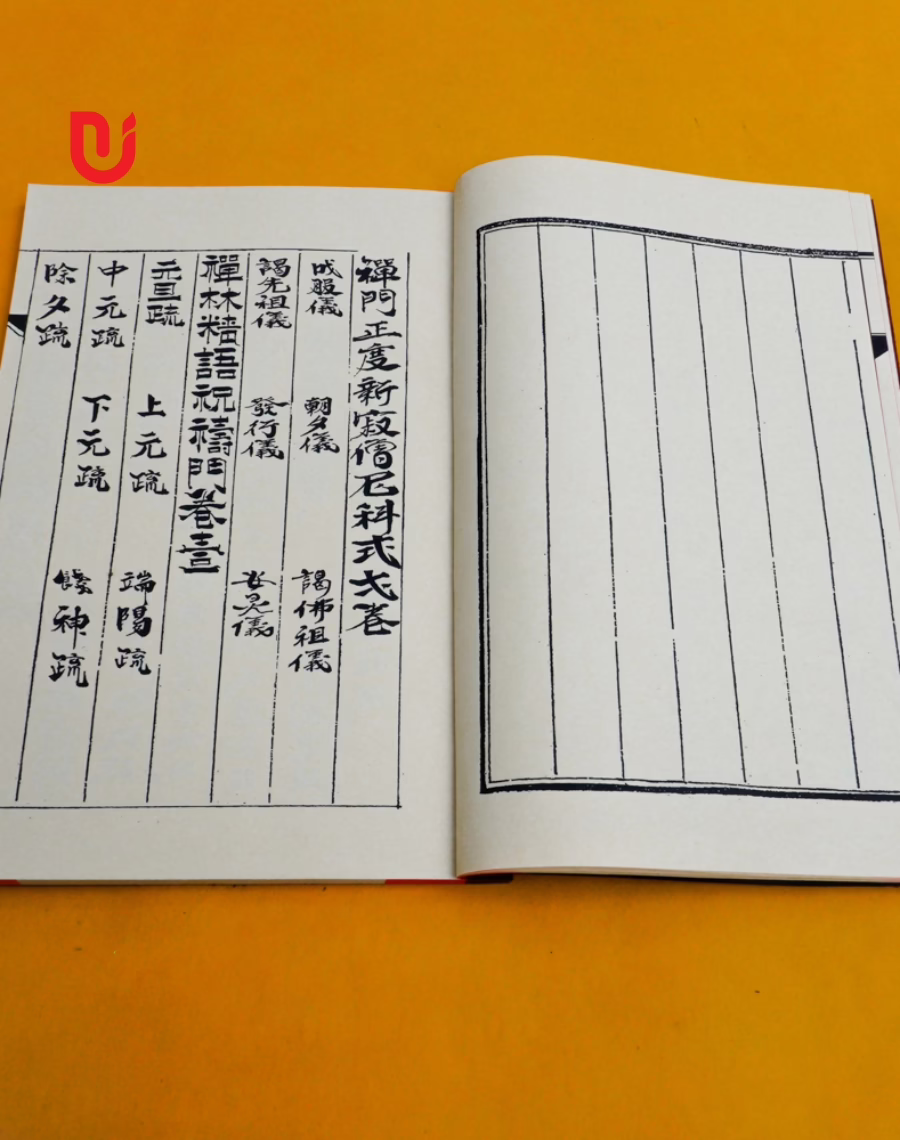 禪門正度新寂僧尼科式弍卷
成服儀 朝夕儀 謁佛祖儀
謁先祖儀 發行儀 安灵儀
禪林精語祝禱門卷壹
元旦疏 上元疏 端陽疏
中元疏 下元疏 餞神疏
除夕疏